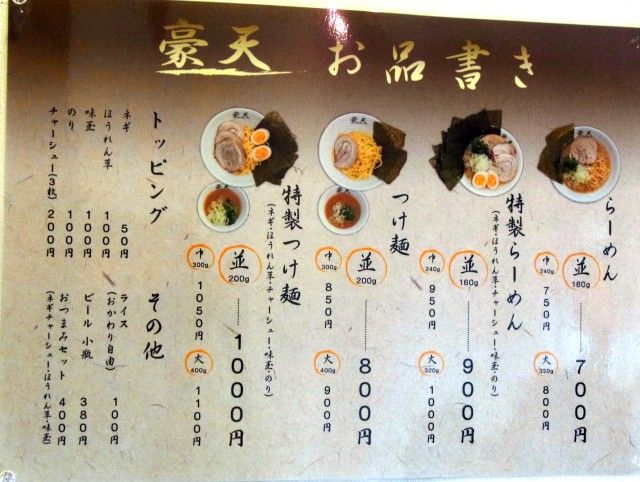 豪天 お品書き
らーめん
並 160g 700円
中 240g 750円
大 320g 800円
特製らーめん
(ネギ・ほうれん草・チャーシュー・味玉・のり)
並 160g 900円
中 240g 950円
大 320g 1000円
つけ麺
並 200g 800円
中 300g 850円
大 400g 900円
特製つけ麺
(ネギ・ほうれん草・チャーシュー・味玉・のり)
並 200g 1000円
中 300g 1050円
大 400g 1100円
トッピング
ネギ 50円
ほうれん草 100円
味玉 100円
のり 100円
チャーシュー(3枚) 200円
その他
ライス
(おかわり自由) 100円
ビール 小瓶 380円
おつまみセット 400円
(ネギチャーシュー・ほうれん草・味玉)